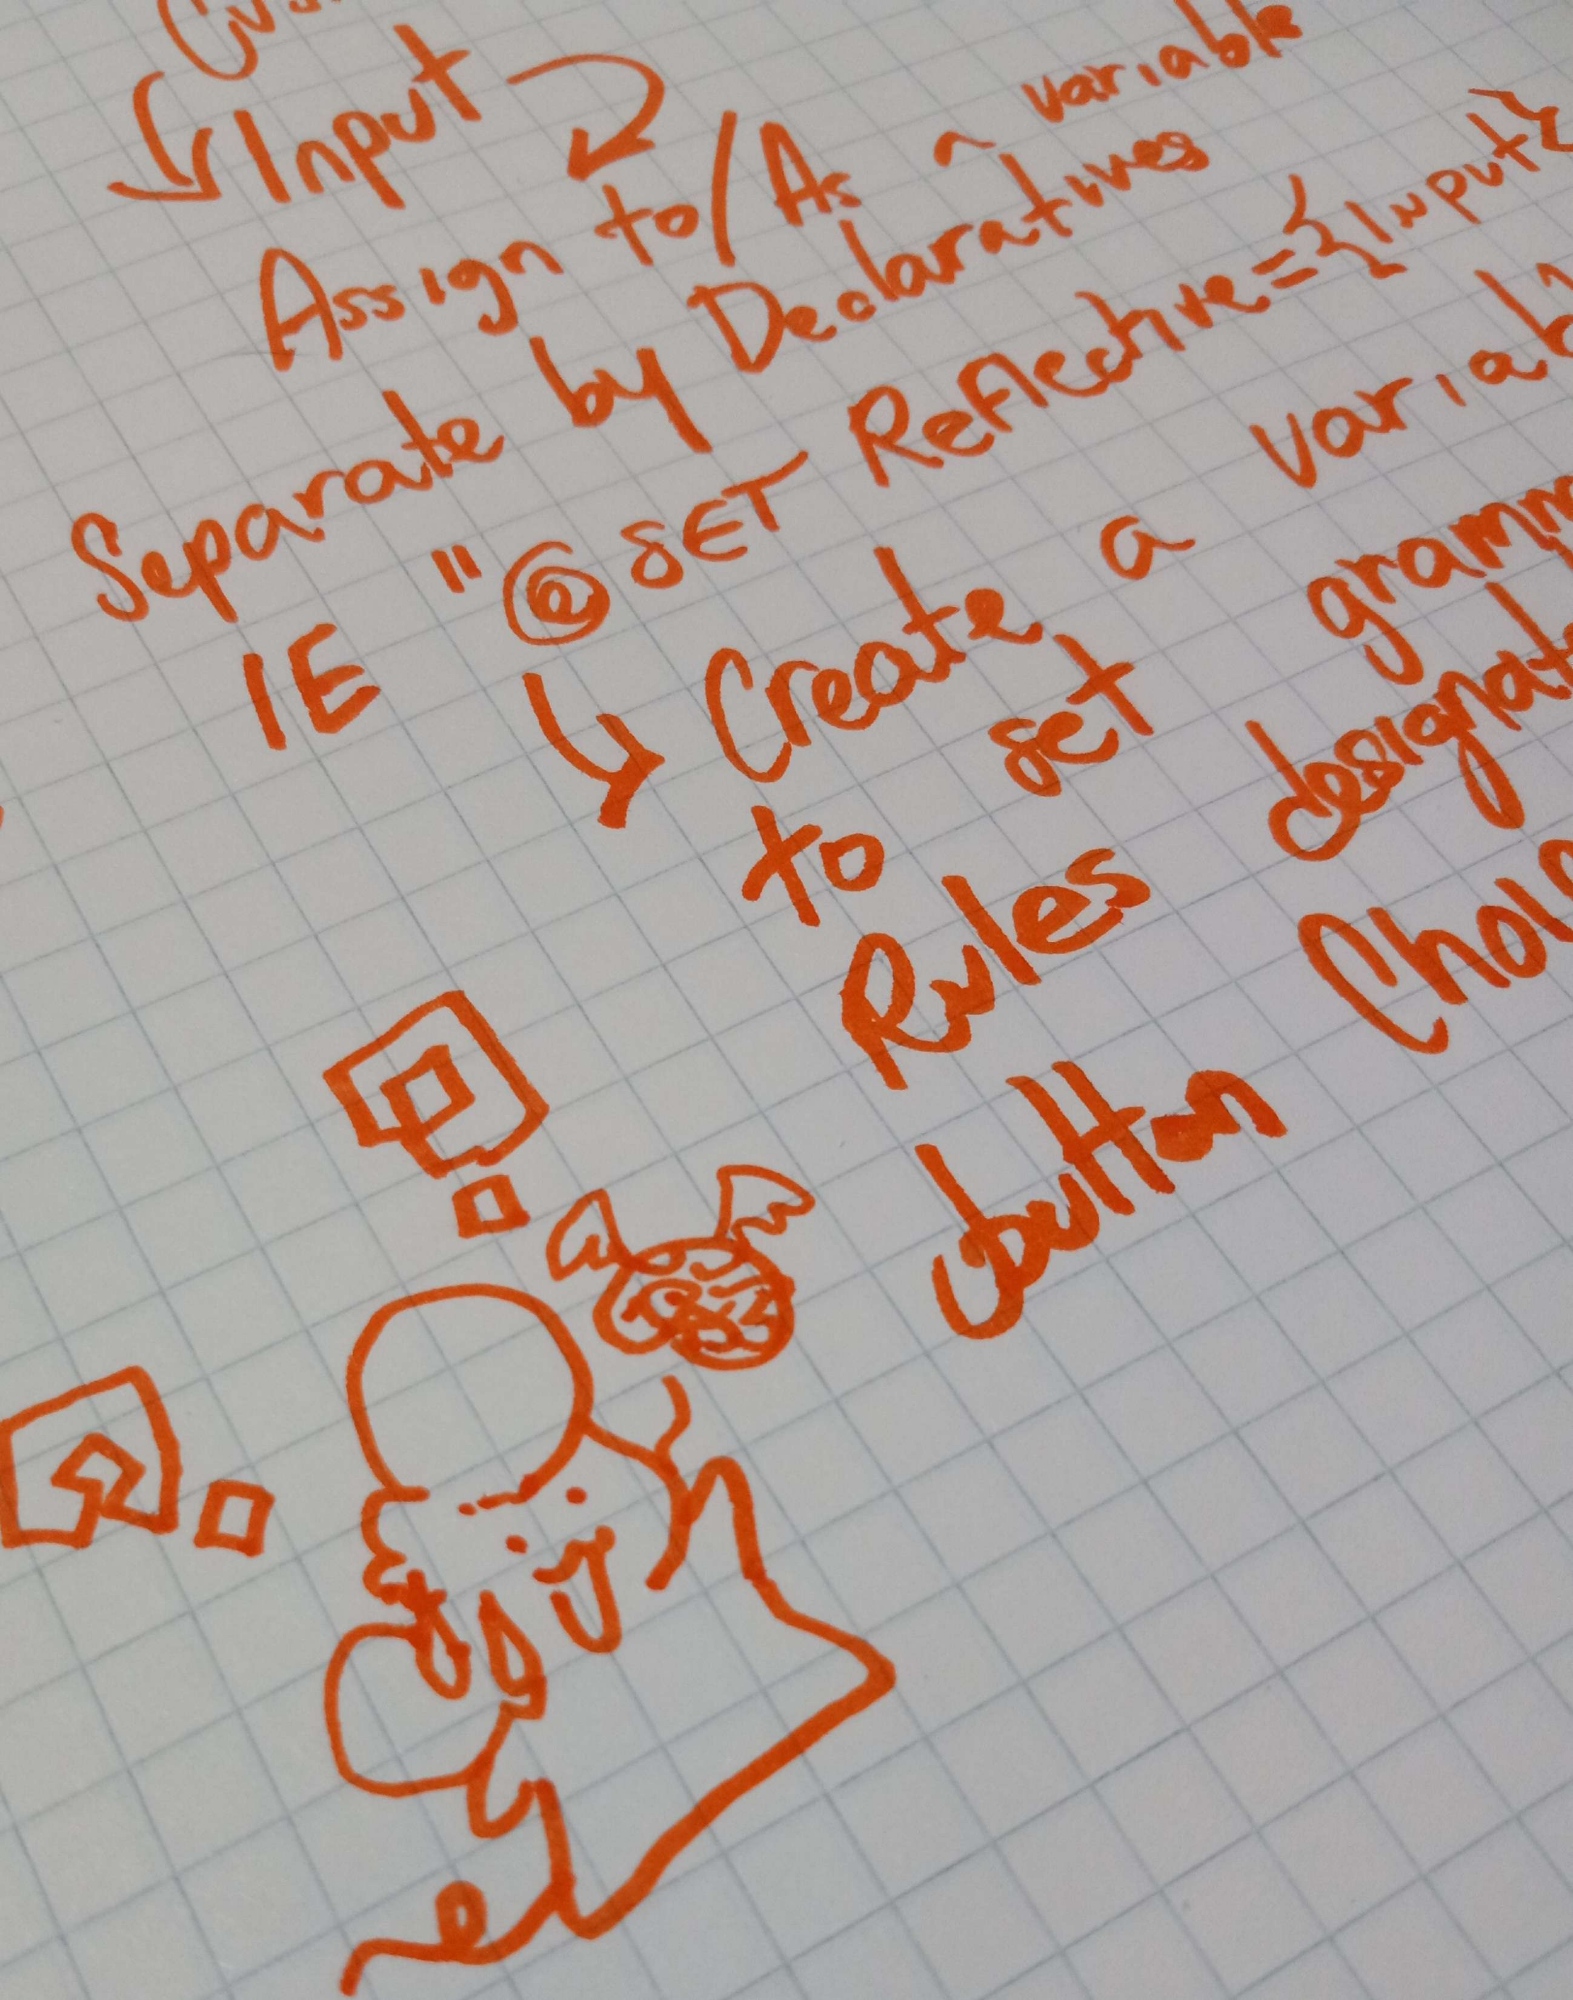 Input
Assign to/As a variable
Separate by Declaratives
IE "@SET Reflective={Input}
Create a variab
to set gramm
Rules designat
button Choi